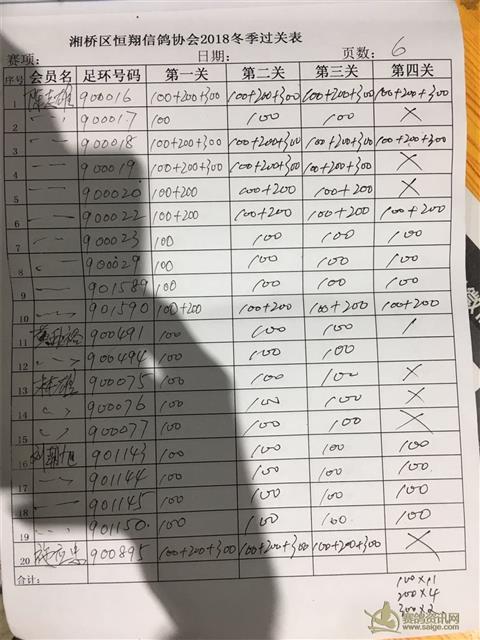 湘桥区恒翔信鸽协会2018冬季过关表
赛项: 日期: 页数: 6
序号 会员名 足环号码 第一关 第二关 第三关 第四关
1 陈志雄 900016 100+200+300 100+200+300 100+200+300 100+200+300
2 〃 900017 100 100 100 ×
3 〃 900018 100+200+300 100+200+300 100+200+300 100+200+300
4 〃 900019 100+200+300 100+200+300 100+200+300 ×
5 〃 900020 100+200 100+200 100+200 ×
6 〃 900022 100+200 100+200 100+200 100+200
7 〃 900023 100 100 100 100
8 〃 900029 100 100 100 100
9 〃 901589 100 100 100 100
10 〃 901590 100+200 100+200 100+200 100+200
11 900491 100 100 100 /
12 〃 900494 100 100 100
13 900075 100 100 100 ×
14 〃 900076 100 100 100 ×
15 〃 900077 100 100 100 ×
16 刘朝旭 901143 100 100 100 100
17 〃 901144 100 100 100 100
18 〃 901145 100 100 100 100
19 〃 901150 100 100 100 100
20 900895 100+200+300 100+200+300 100+200+300 ×
合计:
100×11
200×4
300×2
赛鸽资讯网
www.saige.com